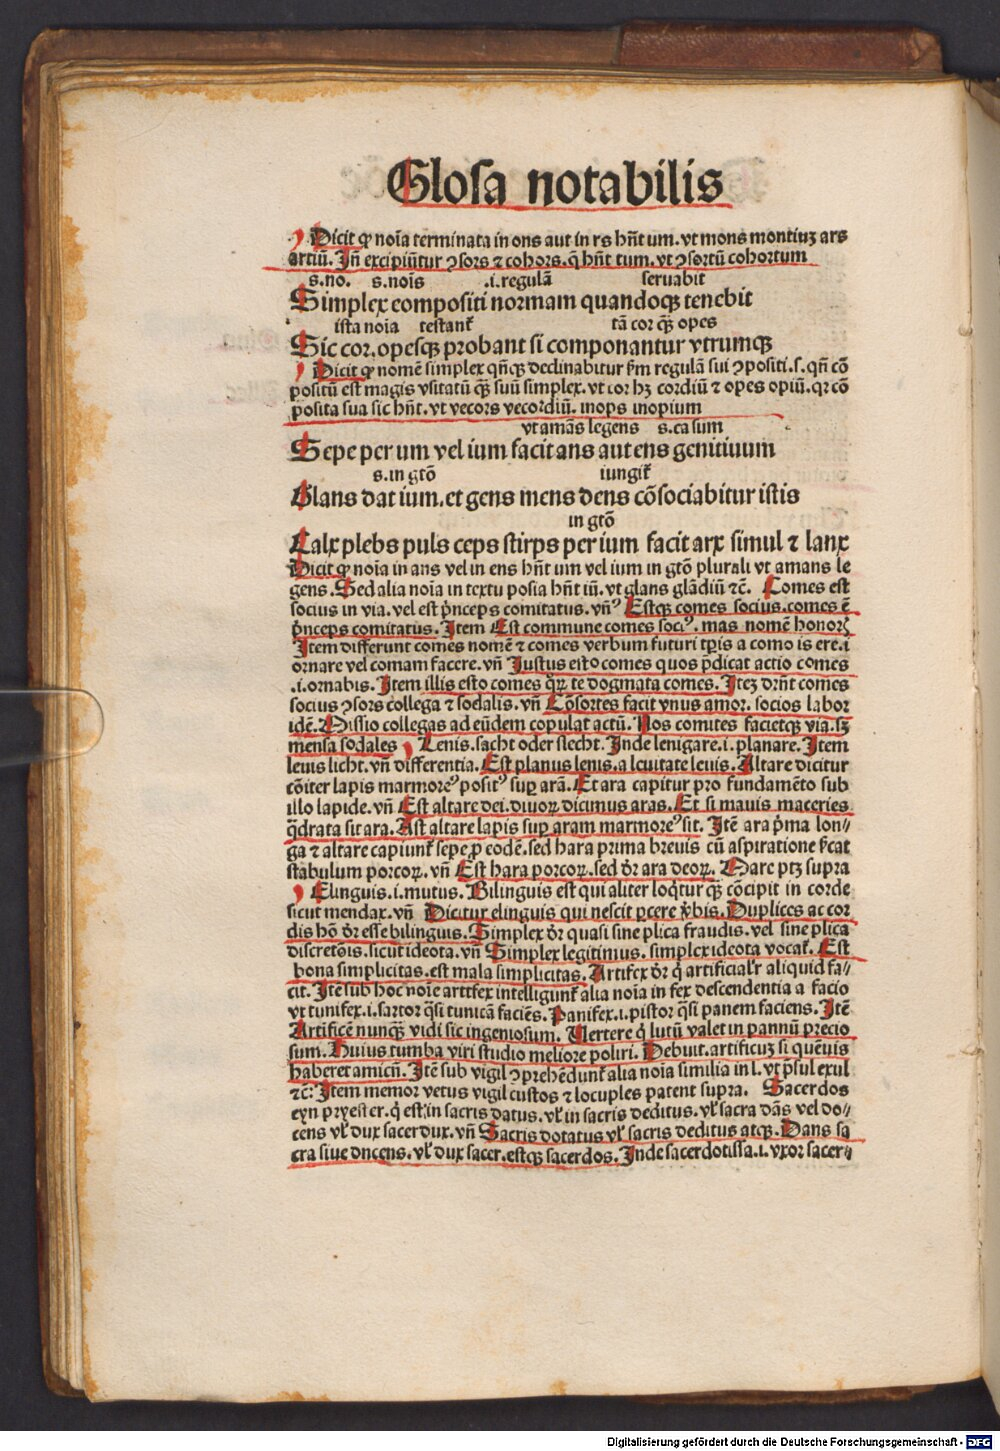 Glosa notabilis
Dicit ꝙ noīa terminata in ons aut in rs hn̄t um. vt mons montiuꝫ ars
artiū. Jn̄ excipiūtur ꝯsors ⁊ cohors. q̄ hn̄t tum. vt ꝯsortū cohortum
s.no. s.noīs .i.regulā seruabit
Simplex compositi normam quandoqꝫ tenebit
ista noīa testant᷑ tā cor qꝫ̄ opes
Sic cor. opesqꝫ probant si componantur vtrumqꝫ
Dicit ꝙ nomē simplex qn̄qꝫ declinabitur ẜm regulā sui ꝯpositi. s. qn̄ cō
positū est magis vsitatū qꝫ̄ suū simplex. vt cor hꝫ cordiū ⁊ opes opiū. qr cō
posita sua sic hn̄t. vt vecors vecordiū. inops inopium
vt amās legens s.casum
Sepe per um vel ium facit ans aut ens genitiuum
s.in gtō iungit᷑
Glans dat ium. et gens mens dens cōsociabitur istis
in gtō
Calx plebs puls ceps stirps per ium facit arx simul ⁊ lanx
Dicit ꝙ noīa in ans vel in ens hn̄t um vel ium in gtō plurali vt amans le
gens. Sed alia noīa in textu posīa hn̄t iū. vt glans glādiū ⁊c̄. Comes est
socius in via. vel est p̄nceps comitatus. vn̄ꝰ Estqꝫ comes socius. comes ē
p̄nceps comitatus. Item Est commune comes sociꝰ. mas nomē honoꝝ
Item differunt comes nomē ⁊ comes verbum futuri tꝑis a como is ere. i
ornare vel comam facere. vn̄ Justus esto comes quos p̄dicat actio comes
.i. ornabis. Item illis esto comes qꝛ̄ te dogmata comes. Iteꝫ dr̄nt comes
socius ꝯsors collega ⁊ sodalis. vn̄ Cōsortes facit vnus amor. socios labor
idē. Missio collegas ad eūdem copulat actū. Nos comites facietqꝫ via. sꝫ
mensa sodales Lenis. sacht oder slecht. Inde lenigare. i. planare. Item
leuis licht. vn̄ differentia. Est planus lenis. a leuitate leuis. Altare dicitur
cōiter lapis marmoreꝰ positꝰ suꝑ arā. Et ara capitur pro fundamēto sub
illo lapide. vn̄ Est altare dei. diuoꝝ dicimus aras. Et si mauis maceries
q̄drata sit ara. Ast altare lapis suꝑ aram marmoreꝰ sit. Itē ara p̄ma lon⸗
ga ⁊ altare capiunt᷑ sepe ꝓ eodē. sed hara prima breuis cū aspiratione ẜcat
stabulum porcoꝝ. vn̄ Est hara porcoꝝ. sed dr̄ ara deoꝝ. Mare ptꝫ supra
Elinguis. i. mutus. Bilinguis est qui aliter loq̄tur qꝫ̄ cōcipit in corde
sicut mendax. vn̄ Dicitur elinguis qui nescit ꝑcere v̄bis. Duplices ac cor
dis hō dr̄ esse bilinguis. Simplex dr̄ quasi sine plica fraudis. vel sine plica
discretōis. sicut ideota. vn̄ Simplex legitimus. simplex ideota vocat᷑. Est
bona simplicitas. est mala simplicitas. Artifex dr̄ q̄ artificialr̄ aliquid fa⸗
cit. Itē sub hoc noīe artifex intelligunt᷑ alia noīa in fex descendentia a facio
vt tunifex. i. sartor q̄si tunicā faciēs. Panifex. i. pistor q̄si panem faciens. Itē
Artificē nunqꝫ̄ vidi sic ingeniosum. Uertere q̄ lutū valet in pannū precio
sum. Huius tumba viri studio meliore poliri. Debuit. artificuꝫ si quēuis
haberet amicū. Itē sub vigil ꝯprehēdunt᷑ alia noīa similia in l. vt p̄sul exul
⁊c̄: Item memor vetus vigil custos ⁊ locuples patent supra. Sacerdos
eyn pryester. q̄ est in sacris datus. vl᷑ in sacris deditus. vl᷑ sacra dās vel do⸗
cens vl᷑ dux sacer dux. vn̄ Sacris dotatus vl᷑ sacris deditus atqꝫ. Dans sa
cra siue docens. vl᷑ dux sacer. estqꝫ sacerdos. Inde sacerdotissa. i. vxor sacer⸗
Digitalisierung gefördert durch die Deutsche Forschungsgemeinschaft - DFG